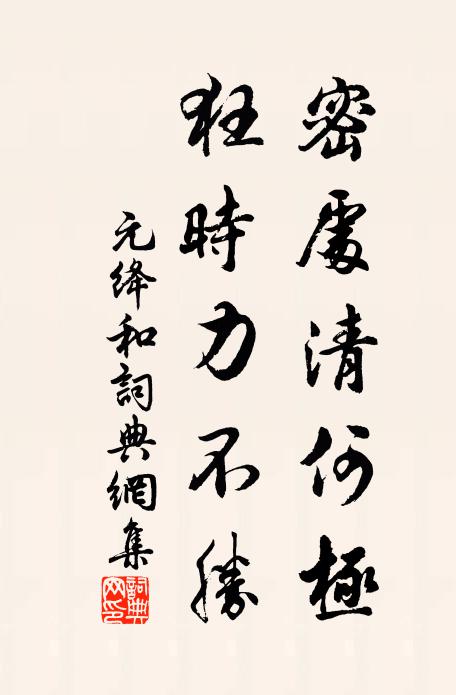 密處清何極
狂時力不勝
元绛和詞典網集
詞典網印